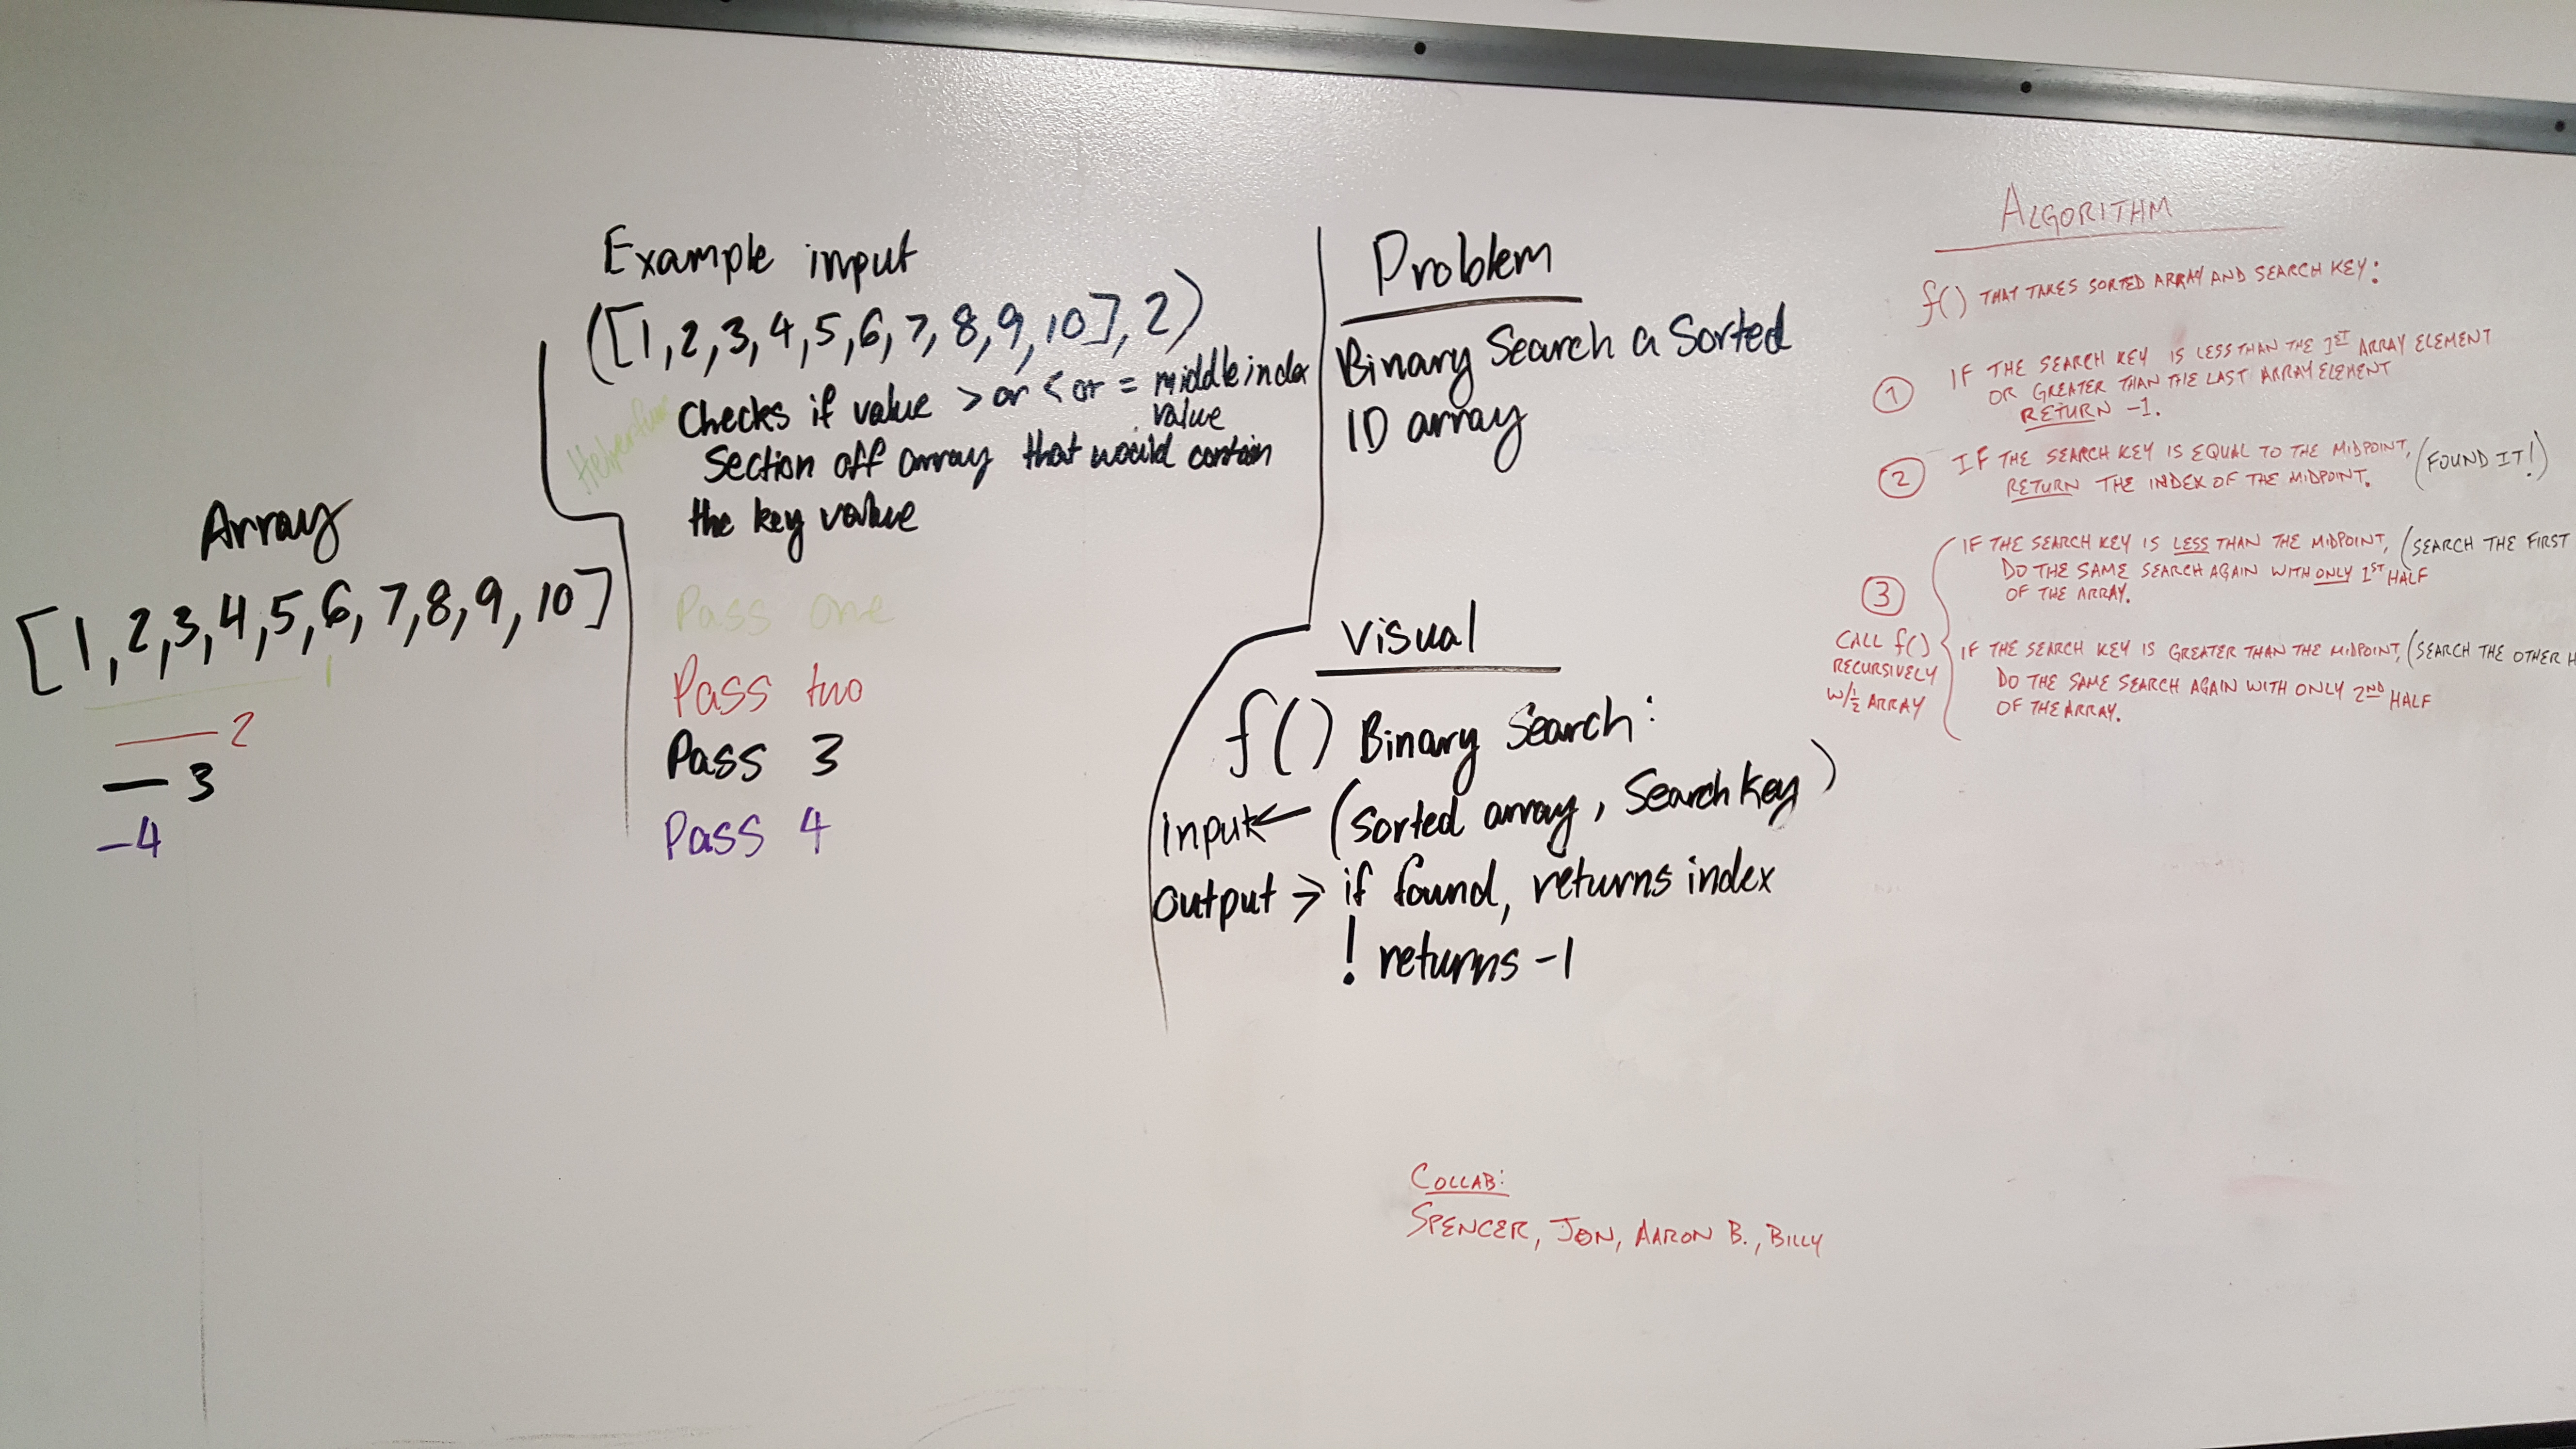 Array
[1,2,3,4,5,6,7,8,9,10]
1
2
3
-4
Example input
([1,2,3,4,5,6,7,8,9,10],2)
Checks if value > or < or = middle index
value
Section off array that would contain
the key value
Pass one
Pass two
Pass 3
Pass 4
Problem
Binary Search a Sorted
1D array
Visual
f() Binary Search:
input← (Sorted array, Search Key)
Output > if found, returns index
! returns -1
ALGORITHM
f() THAT TAKES SORTED ARRAY AND SEARCH KEY:
① IF THE SEARCH KEY IS LESS THAN THE 1ST ARRAY ELEMENT
OR GREATER THAN THE LAST ARRAY ELEMENT
RETURN -1.
② IF THE SEARCH KEY IS EQUAL TO THE MIDPOINT, (FOUND IT!)
RETURN THE INDEX OF THE MIDPOINT.
③
CALL f()
RECURSIVELY
W/½ ARRAY
IF THE SEARCH KEY IS LESS THAN THE MIDPOINT, (SEARCH THE FIRST
DO THE SAME SEARCH AGAIN WITH ONLY 1ST HALF
OF THE ARRAY.
IF THE SEARCH KEY IS GREATER THAN THE MIDPOINT, (SEARCH THE OTHER H
DO THE SAME SEARCH AGAIN WITH ONLY 2ND HALF
OF THE ARRAY.
COLLAB:
SPENCER, JON, AARON B., BILLY